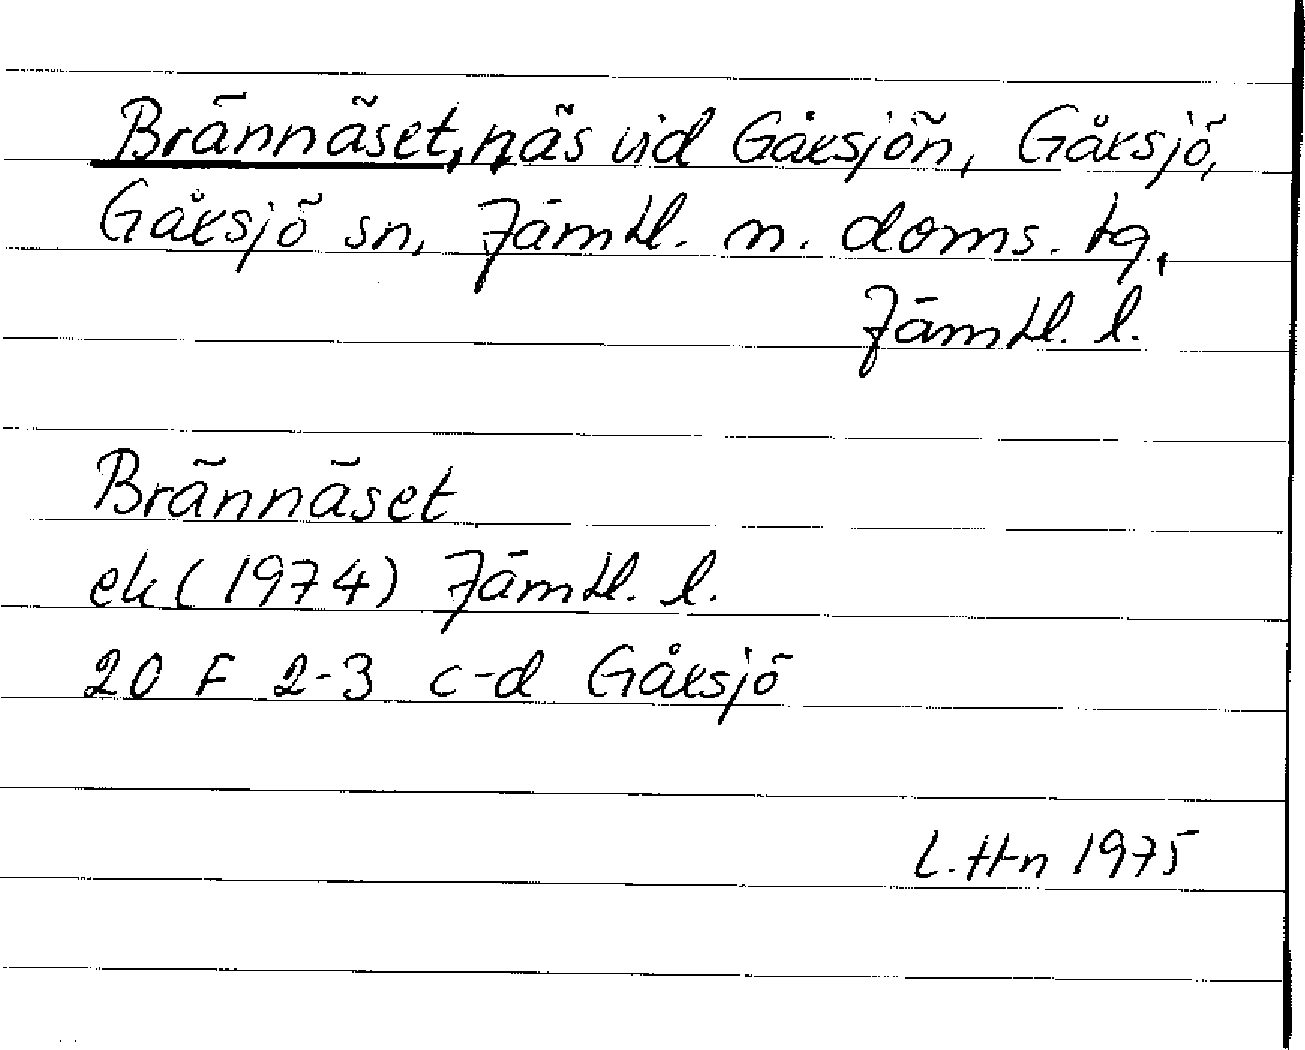 Brännäset, näs vid Gåxsjön, Gåxsjö,
Gåxsjö sn, Jämtl. n. doms. tg,
Jämtl. l.
Brännäset
ek (1974) Jämtl. l.
20 F 2-3 c-d Gåxsjö
L. Hn 1975